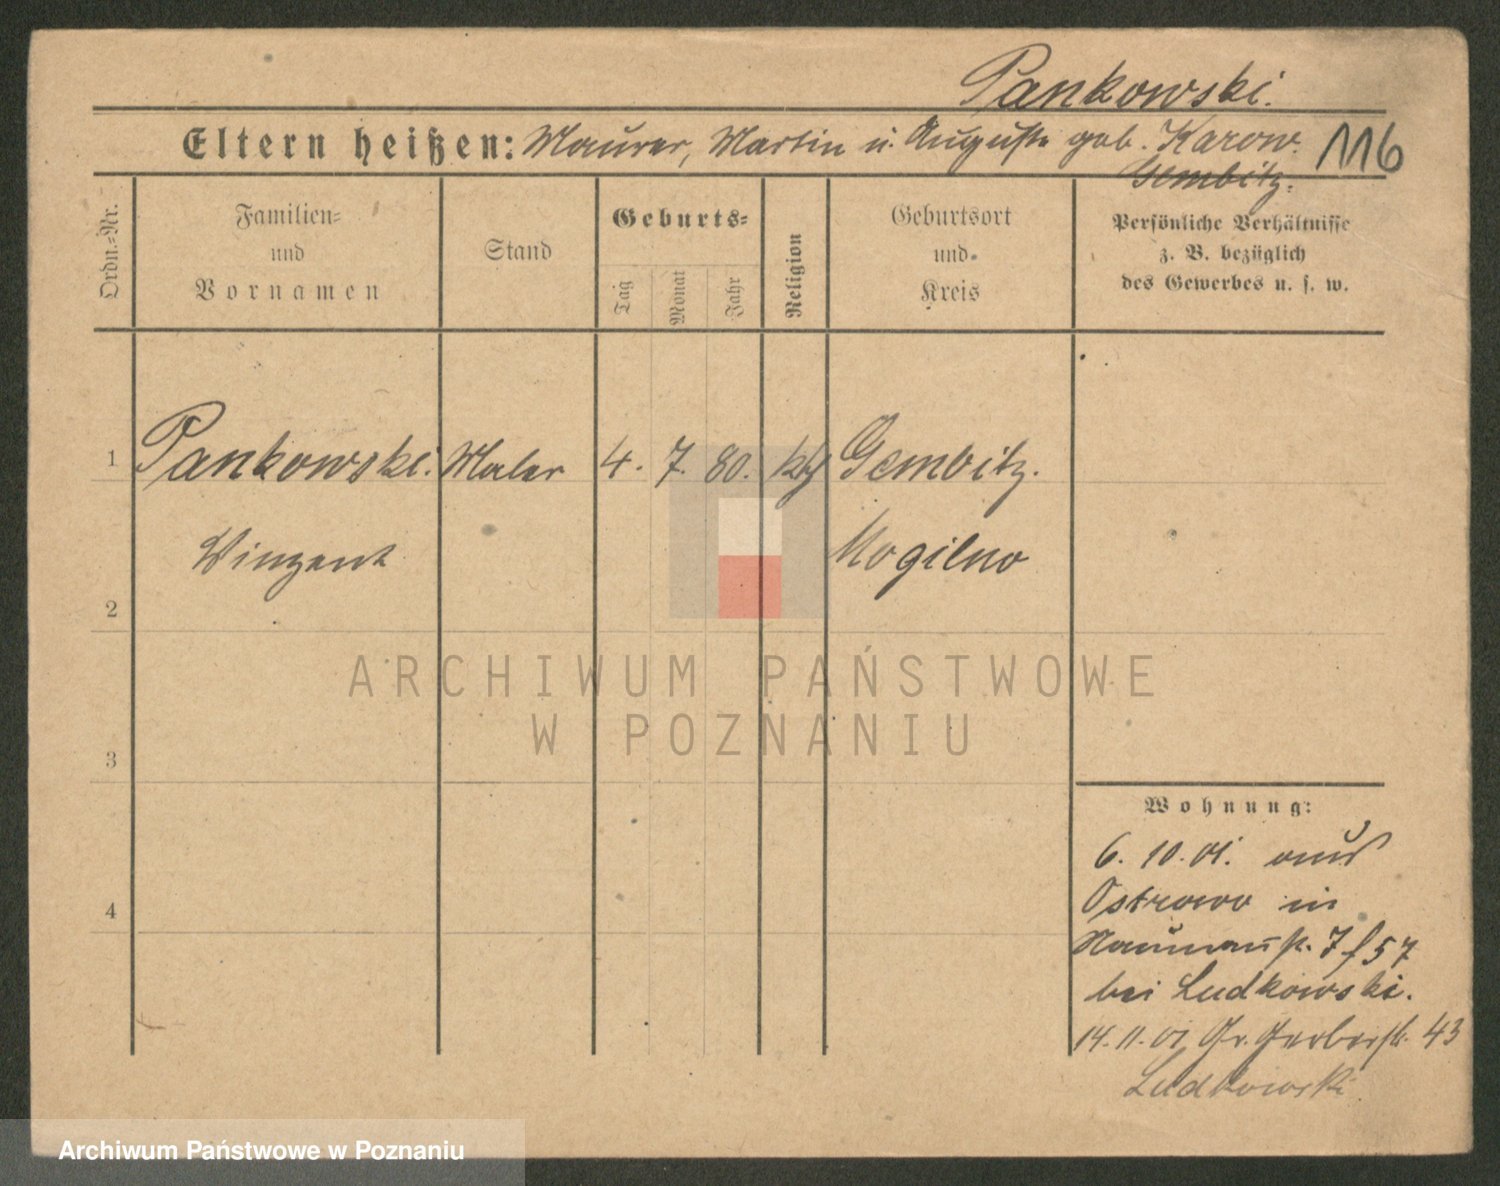 Pankowski.
Eltern heißen: Maurer, Martin u. Auguste geb. Karow.
116
Gembitz.
Ordn.=Nr.
Familien=
und
Vornamen
Stand
Geburts=
Tag
Monat
Jahr
Religion
Geburtsort
und
Kreis
Persönliche Verhältnisse
z. B. bezüglich
des Gewerbes u. s. w.
1 Pankowski. Maler 4. 7. 80. kth Gembitz.
Winzent Mogilno
2
3
4
Wohnung:
6. 10. 01. aus
Ostrowo in
Naumannstr. 7 f 57
bei Ludkowski.
14. 11. 01 Gr. Gerberstr. 43
Ludkowski
ARCHIWUM PAŃSTWOWE
W POZNANIU
Archiwum Państwowe w Poznaniu